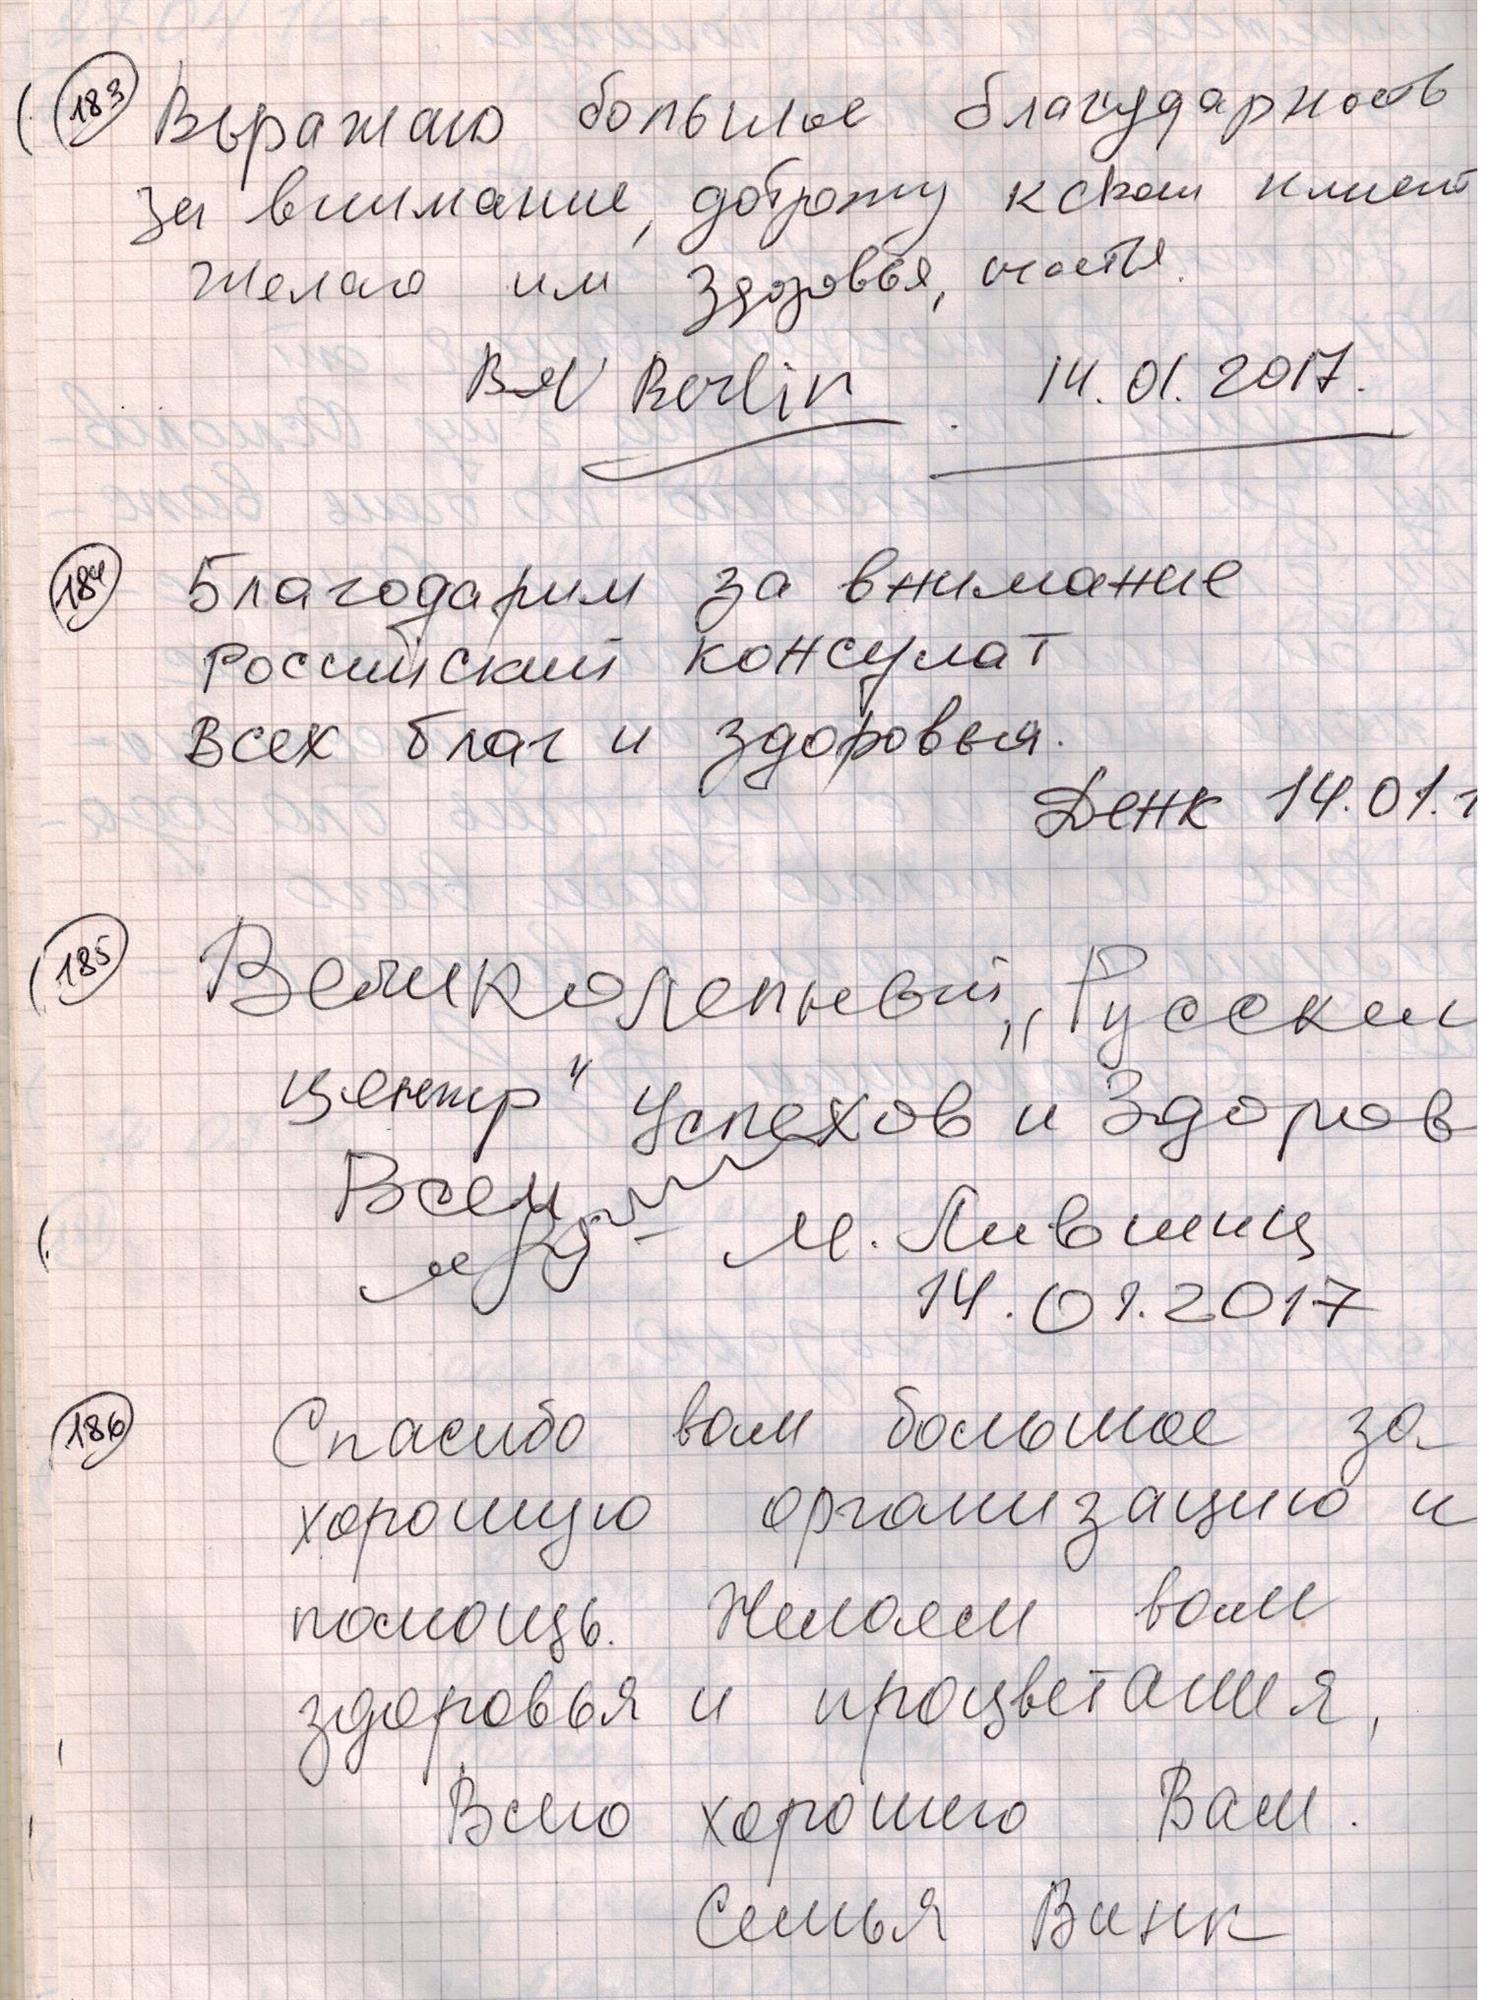 183 Выражаю большое благударность
за внимание, доброту к своим клиент
желаю им здоровья, счастья.
Berlin 14.01.2017.
184 Благодарим за внимание
Российский консулат
Всех благ и здоровья.
Денк 14.01.1
185 Великолепный „Русский
центр" Успехов и Здоров
Всем
М. Лившиц
14.01.2017
186 Спасибо вам большое за
хорошую организацию и
помощь. Желаем вам
здоровья и процветания,
Всего хорошего Вам.
Семья Винк